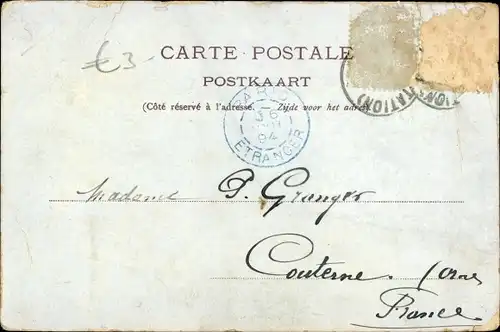 €3-
CARTE POSTALE
POSTKAART
(Côté réservé à l'adresse. Zijde voor het adres)
PARIS
ETRANGER
(STATION)
Madame P. Granger
Couterne. (Orne
France.